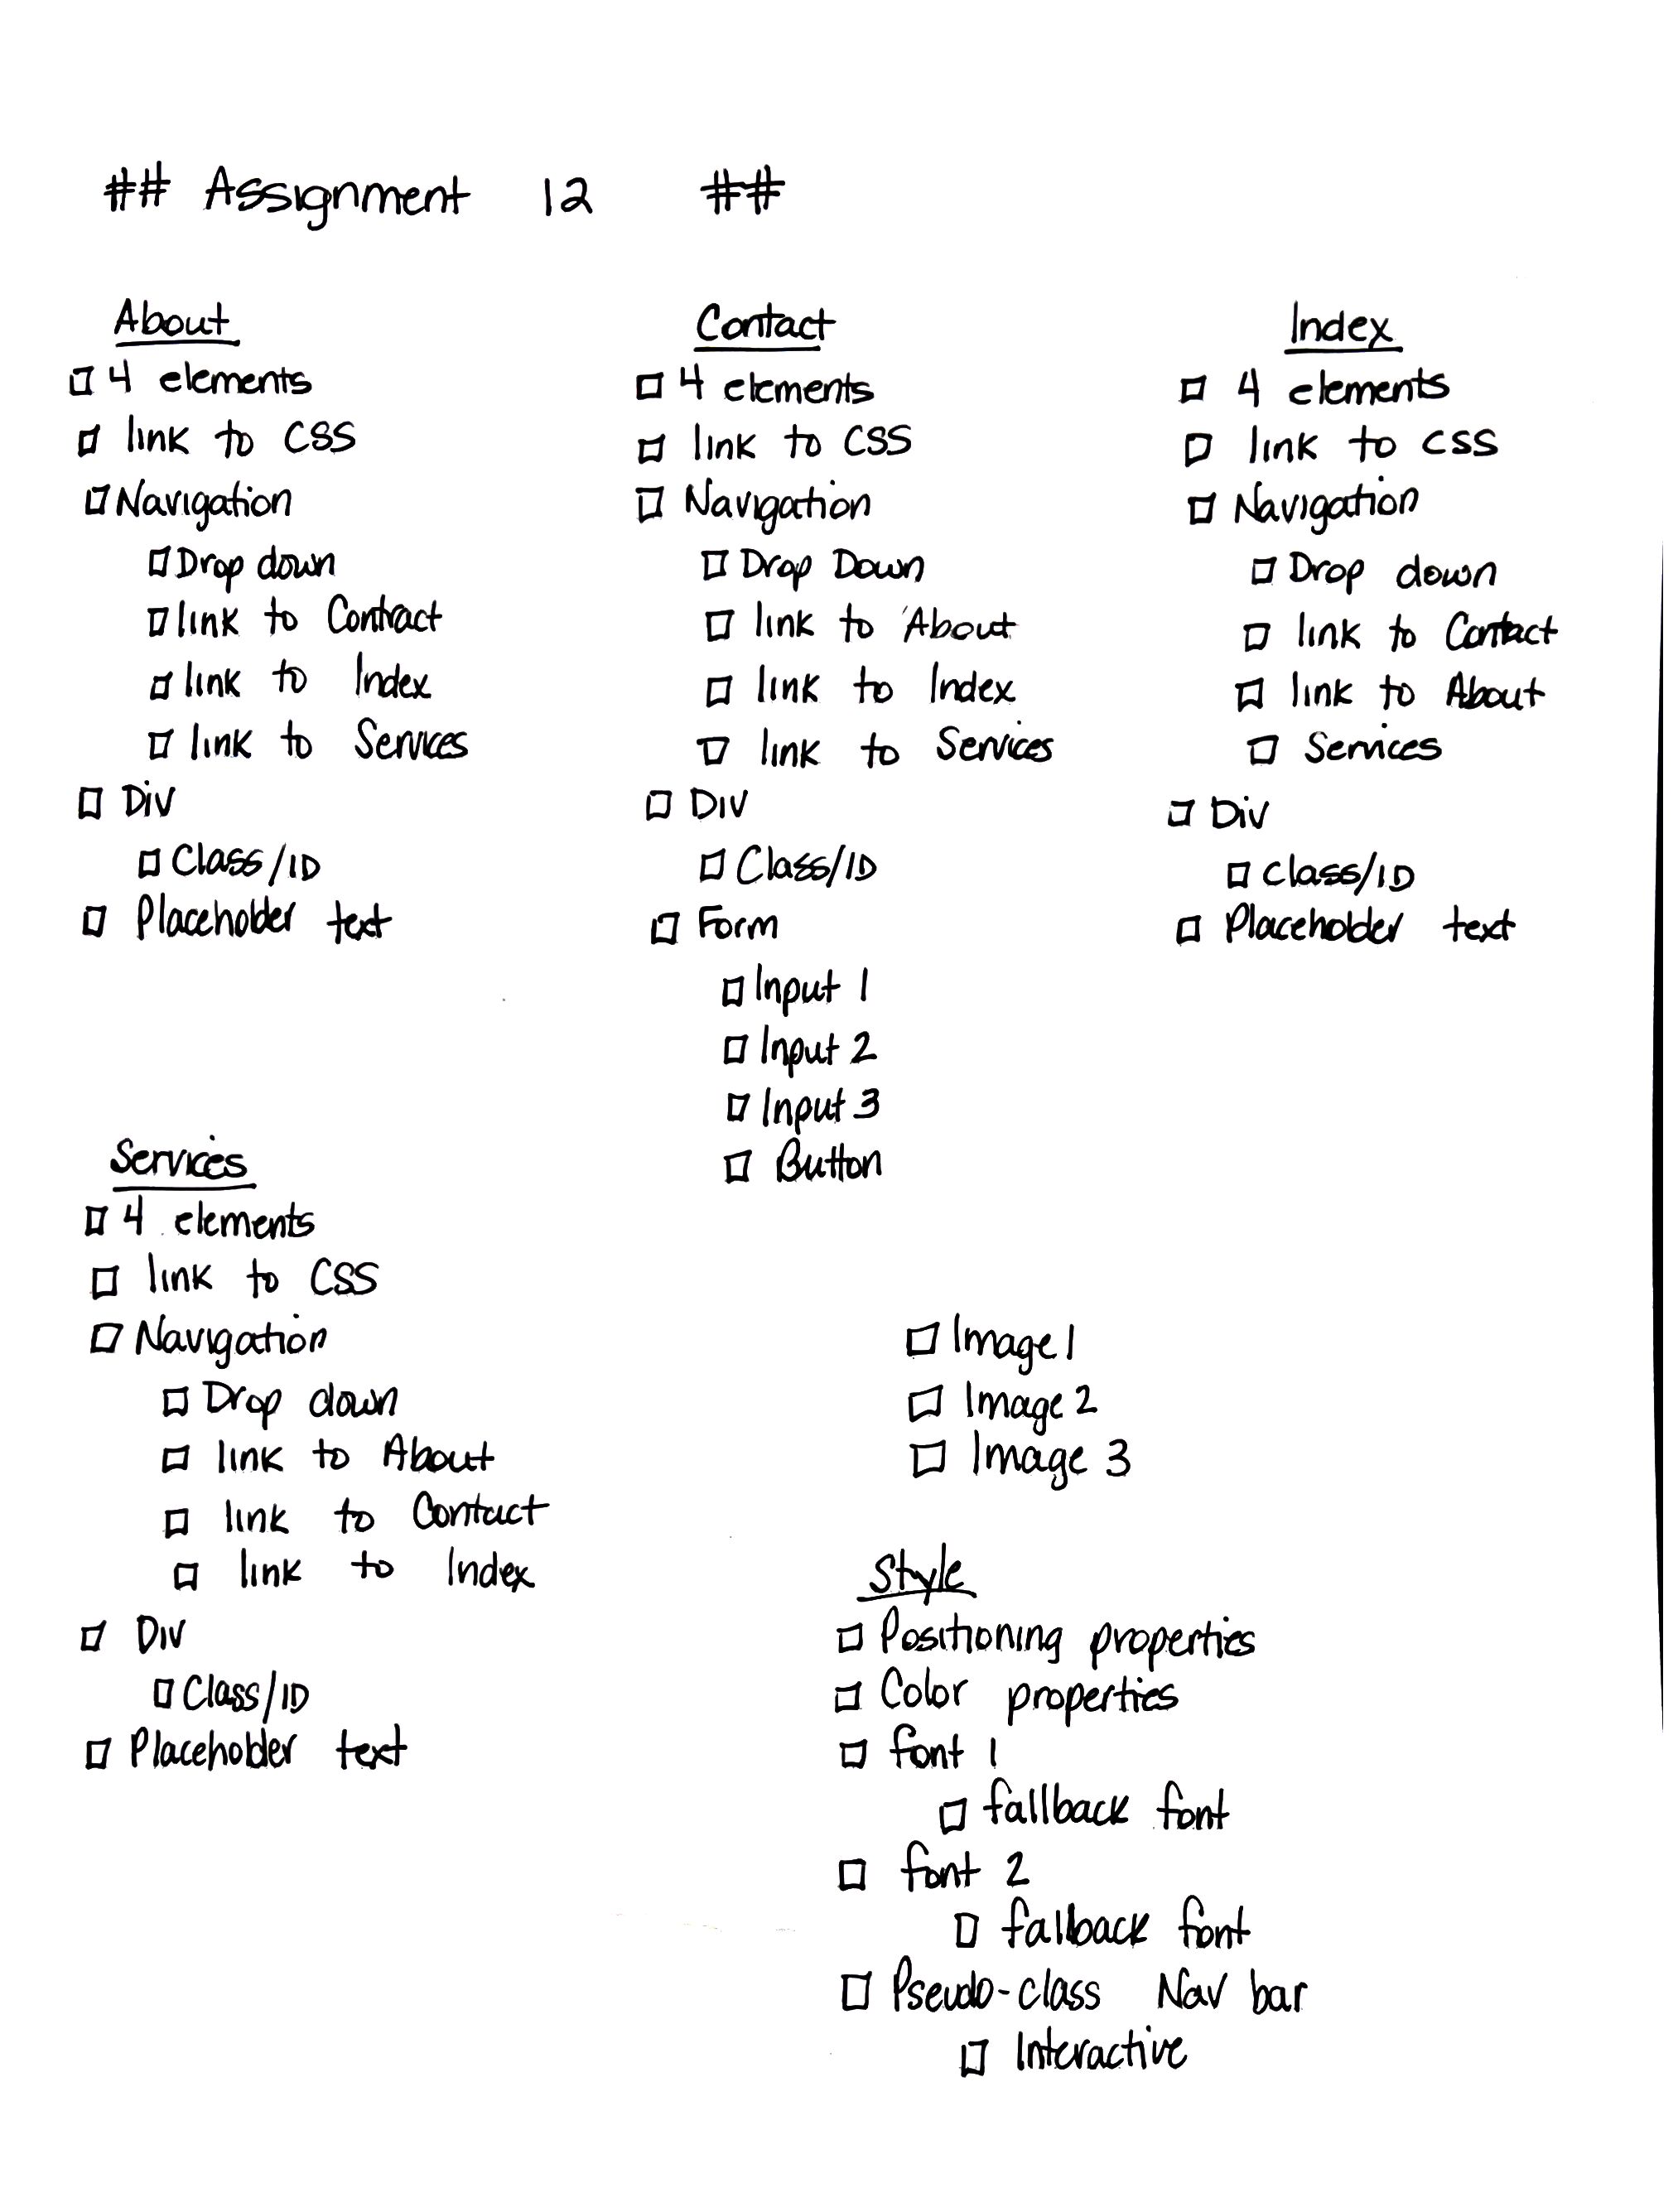 ## Assignment 12 ##
About
4 elements
link to CSS
Navigation
Drop down
link to Contact
link to Index
link to Services
Div
Class/ID
Placeholder text
Contact
4 elements
link to CSS
Navigation
Drop Down
link to About
link to Index
link to Services
Div
Class/ID
Form
Input 1
Input 2
Input 3
Button
Index
4 elements
link to CSS
Navigation
Drop down
link to Contact
link to About
Services
Div
Class/ID
Placeholder text
Services
4 elements
link to CSS
Navigation
Drop down
link to About
link to Contact
link to Index
Div
Class/ID
Placeholder text
Image 1
Image 2
Image 3
Style
Positioning properties
Color properties
font 1
fallback font
font 2
fallback font
Pseudo-class Nav bar
Interactive